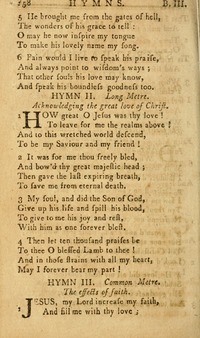 258 HYMNS. B. III.
5 He brought me from the gates of hell,
The wonders of his grace to tell:
O may he now inspire my tongue
To make his lovely name my song.
6 Fain would I live to speak his praise,
And always point to wisdom's ways;
That other souls his love may know,
And speak his boundless goodness too.
HYMN II. Long Metre.
Acknowledging the great love of Christ.
1 HOW great O Jesus was thy love!
To leave for me the realms above!
And to this wretched world descend,
To be my Saviour and my friend!
2 It was for me thou freely bled,
And bow'd thy great majestic head;
Then gave the last expiring breath,
To save me from eternal death.
3 My soul, and did the Son of God,
Give up his life and spill his blood,
To give to me his joy and rest,
With him as one forever blest.
4 Then let ten thousand praises be
To thee O blessed Lamb to thee!
And in those strains with all my heart,
May I forever bear my part!
HYMN III. Common Metre.
The effects of faith.
1 JESUS, my Lord increase my faith,
And fill me with thy love;